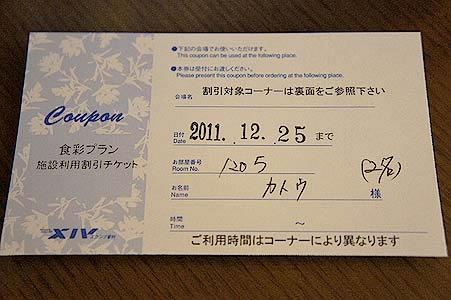 Coupon
食彩プラン
施設利用割引チケット
XIV
●下記の会場でお使いいただけます。
This coupon can be used at the following place.
●本券は受付にお渡しください。
Please present this coupon before ordering at the following place.
会場名 割引対象コーナーは裏面をご参照下さい
日付 2011. 12. 25 まで
Date
お部屋番号 1205 (2名)
Room No.
お名前 カトウ 様
Name
時間 ～
Time
ご利用時間はコーナーにより異なります